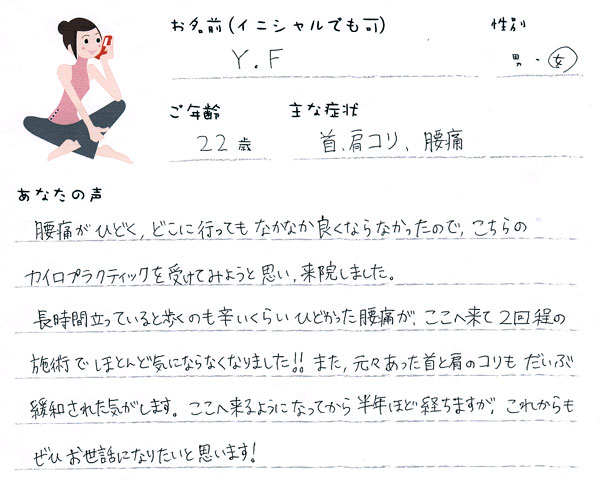 お名前(イニシャルでも可)
性別
Y.F
男・女
ご年齢
主な症状
22歳
首、肩コリ、腰痛
あなたの声
腰痛がひどく、どこに行ってもなかなか良くならなかったので、こちらの
カイロプラクティックを受けてみようと思い、来院しました。
長時間立っていると歩くのも辛いくらいひどかった腰痛が、ここへ来て2回程の
施術でほとんど気にならなくなりました!!また、元々あった首と肩のコリもだいぶ
緩和された気がします。ここへ来るようになってから半年ほど経ちますが、これからも
ぜひお世話になりたいと思います!